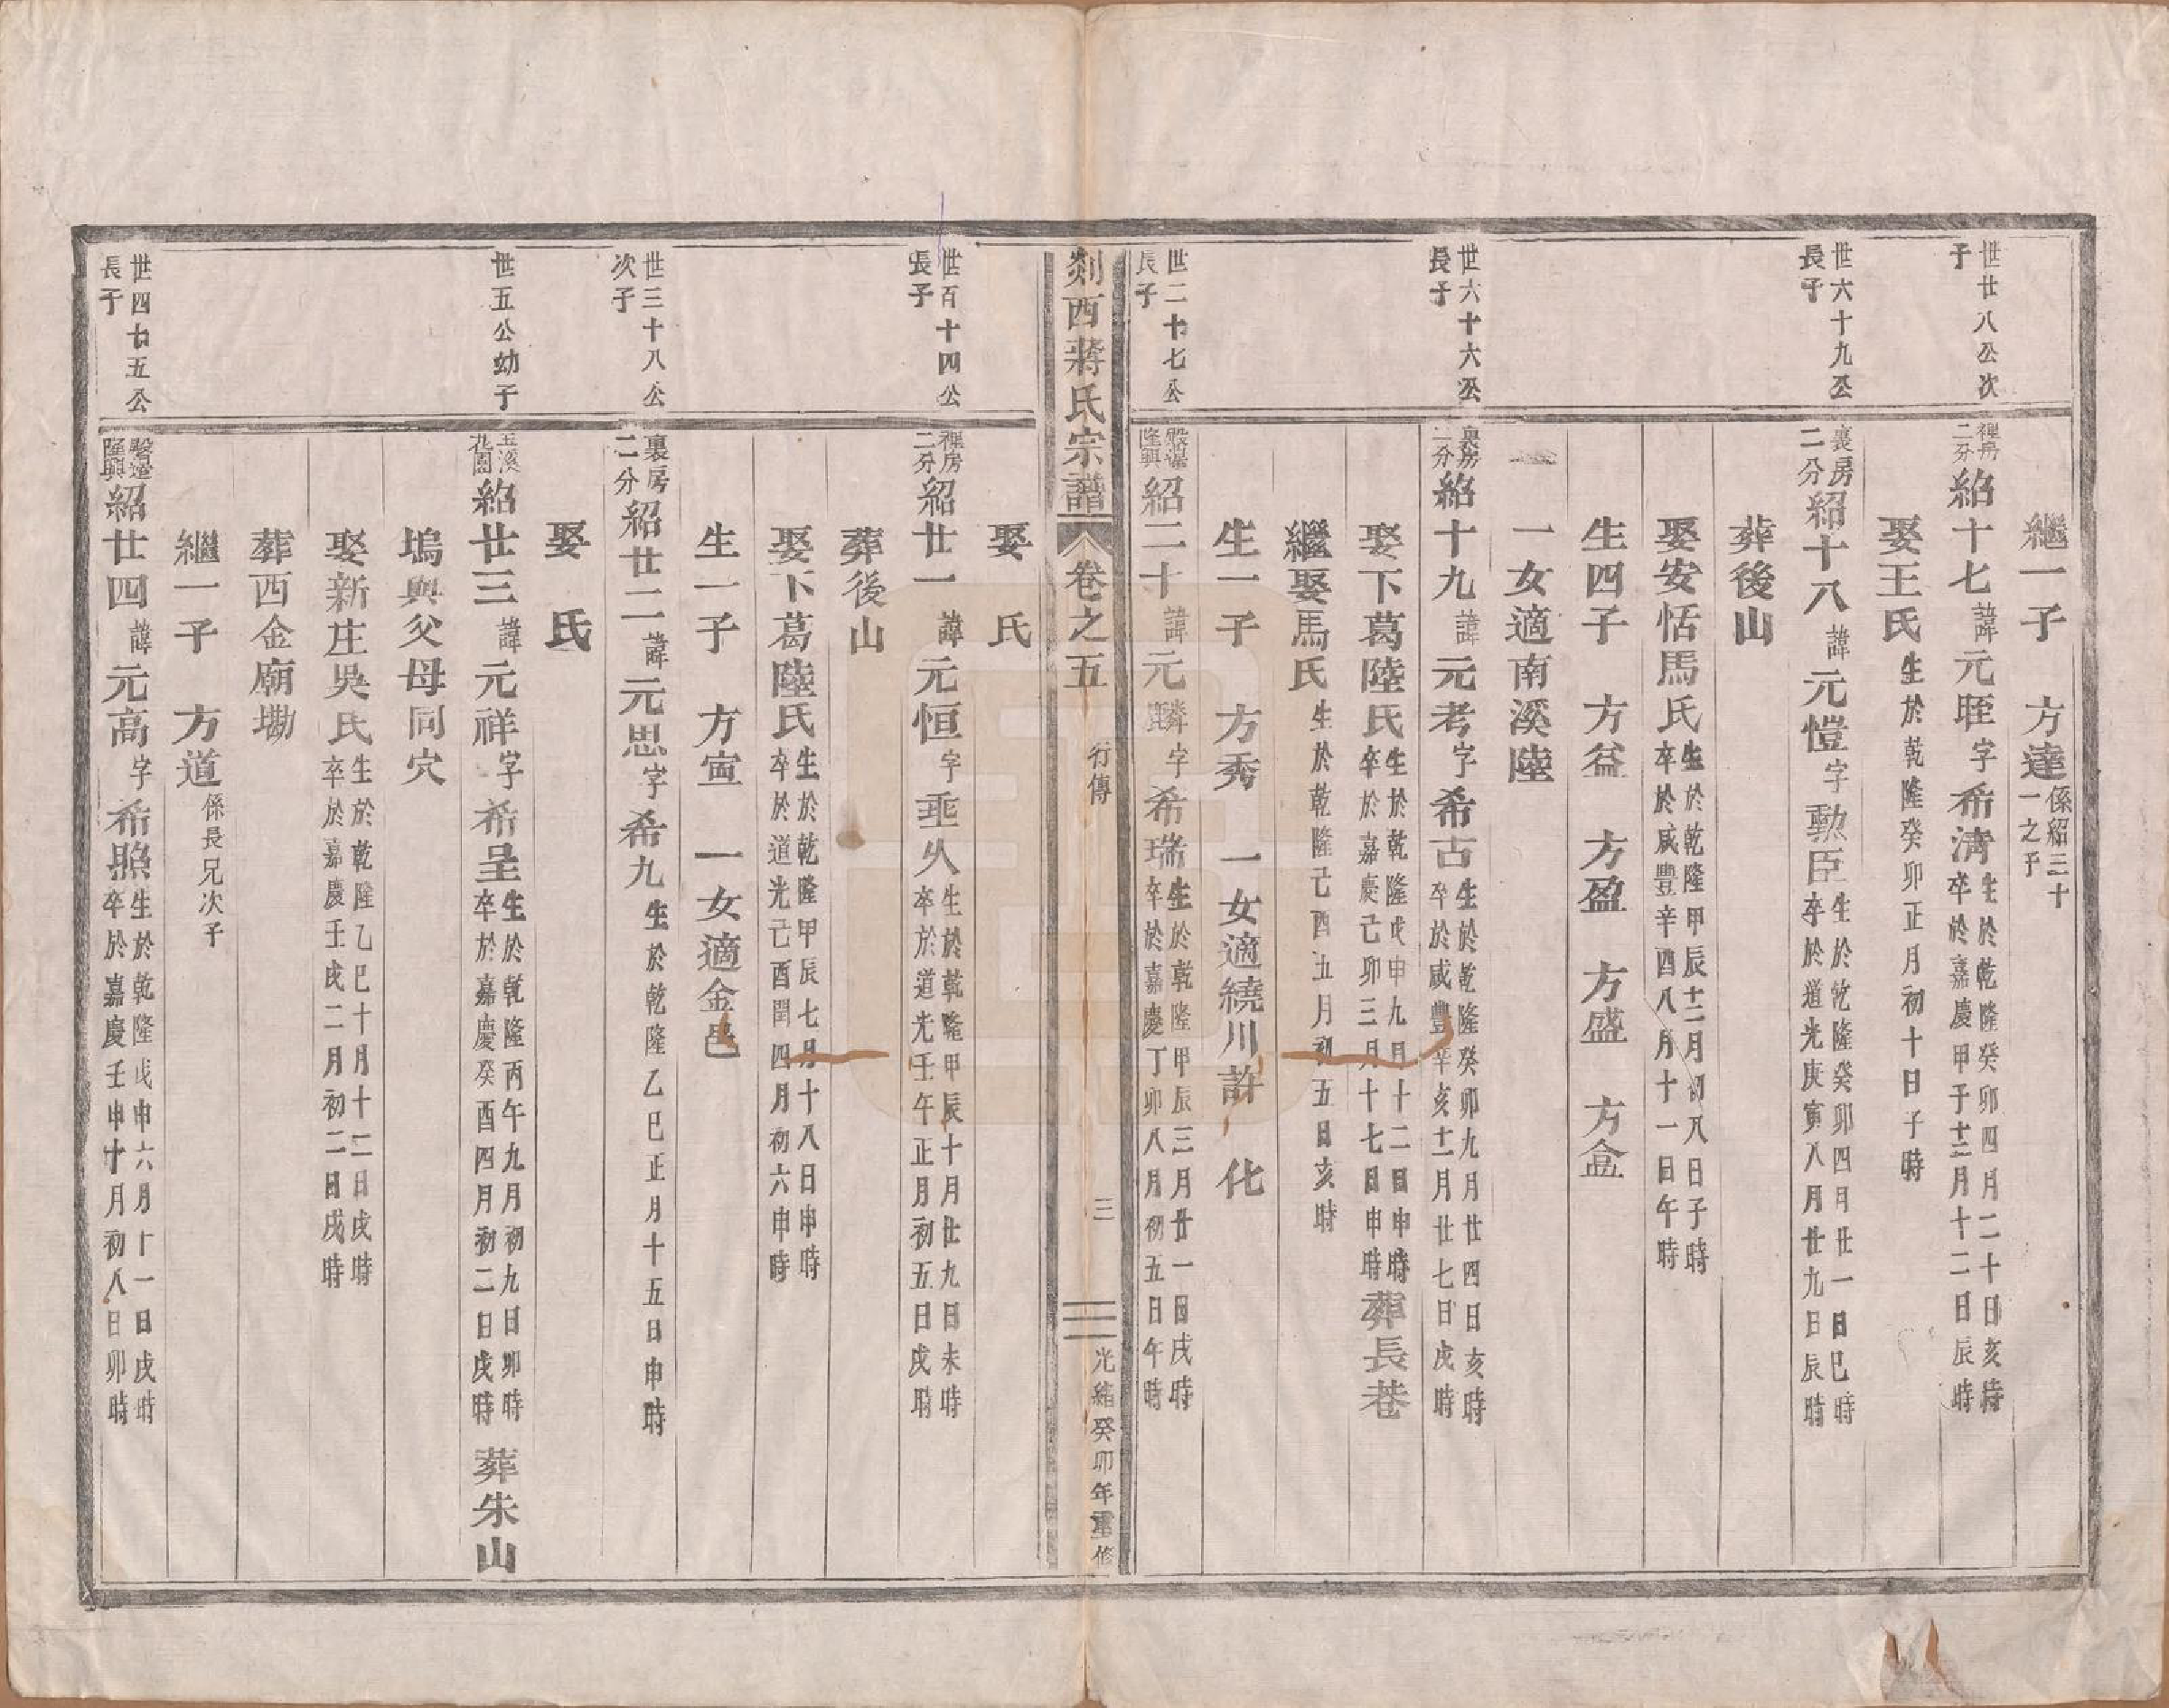 繼一子　方達係紹三十一之子
世廿八公次子
裡房二分紹十七諱元𦔳字希淸生於乾隆癸卯四月二十日亥時卒於嘉慶甲子十二月十二日辰時
娶王氏生於乾隆癸卯正月初十日子時
葬後山
世六十九公長子
裏房二分紹十八諱元愷字勲臣生於乾隆癸卯四月廿一日巳時卒於道光庚寅八月廿九日辰時
娶安恬馬氏生於乾隆甲辰十二月初八日子時卒於咸豐辛酉八月十一日午時
生四子　方益　方盈　方盛　方盒
一女適南溪陸
世六十六公長子
裏房二分紹十九諱元考字希古生於乾隆癸卯九月廿四日亥時卒於咸豐辛亥十二月廿七日戌時
娶下葛陸氏生於乾隆戊申九月十二日申時卒於嘉慶己卯三月十七日申時葬長巷
繼娶馬氏生於乾隆己酉五月初五日亥時
生一子　方秀　一女適繞川許　化
世二十七公長子
隆興紹二十諱元麟字希瑞生於乾隆甲辰三月廿一日戌時卒於嘉慶丁卯八月初五日午時
剡西蔣氏宗譜　卷之五　行傳　三　光緒癸卯年重修
娶　氏
世百十四公長子
裡房二分紹廿一諱元恒字乖久生於乾隆甲辰十月廿九日未時卒於道光壬午正月初五日戌時
葬後山
娶下葛陸氏生於乾隆甲辰七月十八日申時卒於道光己酉閏四月初六申時
生一子　方宣　一女適金邑
世三十八公次子
裏房二分紹廿二諱元思字希九生於乾隆乙巳正月十五日申時
娶　氏
世五公幼子
玉溪花園紹廿三諱元祥字希呈生於乾隆丙午九月初九日卯時卒於嘉慶癸酉四月初二日戌時　葬朱山
塢與父母同穴
娶新庄吳氏生於乾隆乙巳十月十二日戌時卒於嘉慶壬戌二月初二日戌時
葬西金廟墈
繼一子　方道係長兄次子
世四十五公長子
隆興紹廿四諱元高字希照生於乾隆戊申六月十一日戌時卒於嘉慶壬申十月初八日卯時